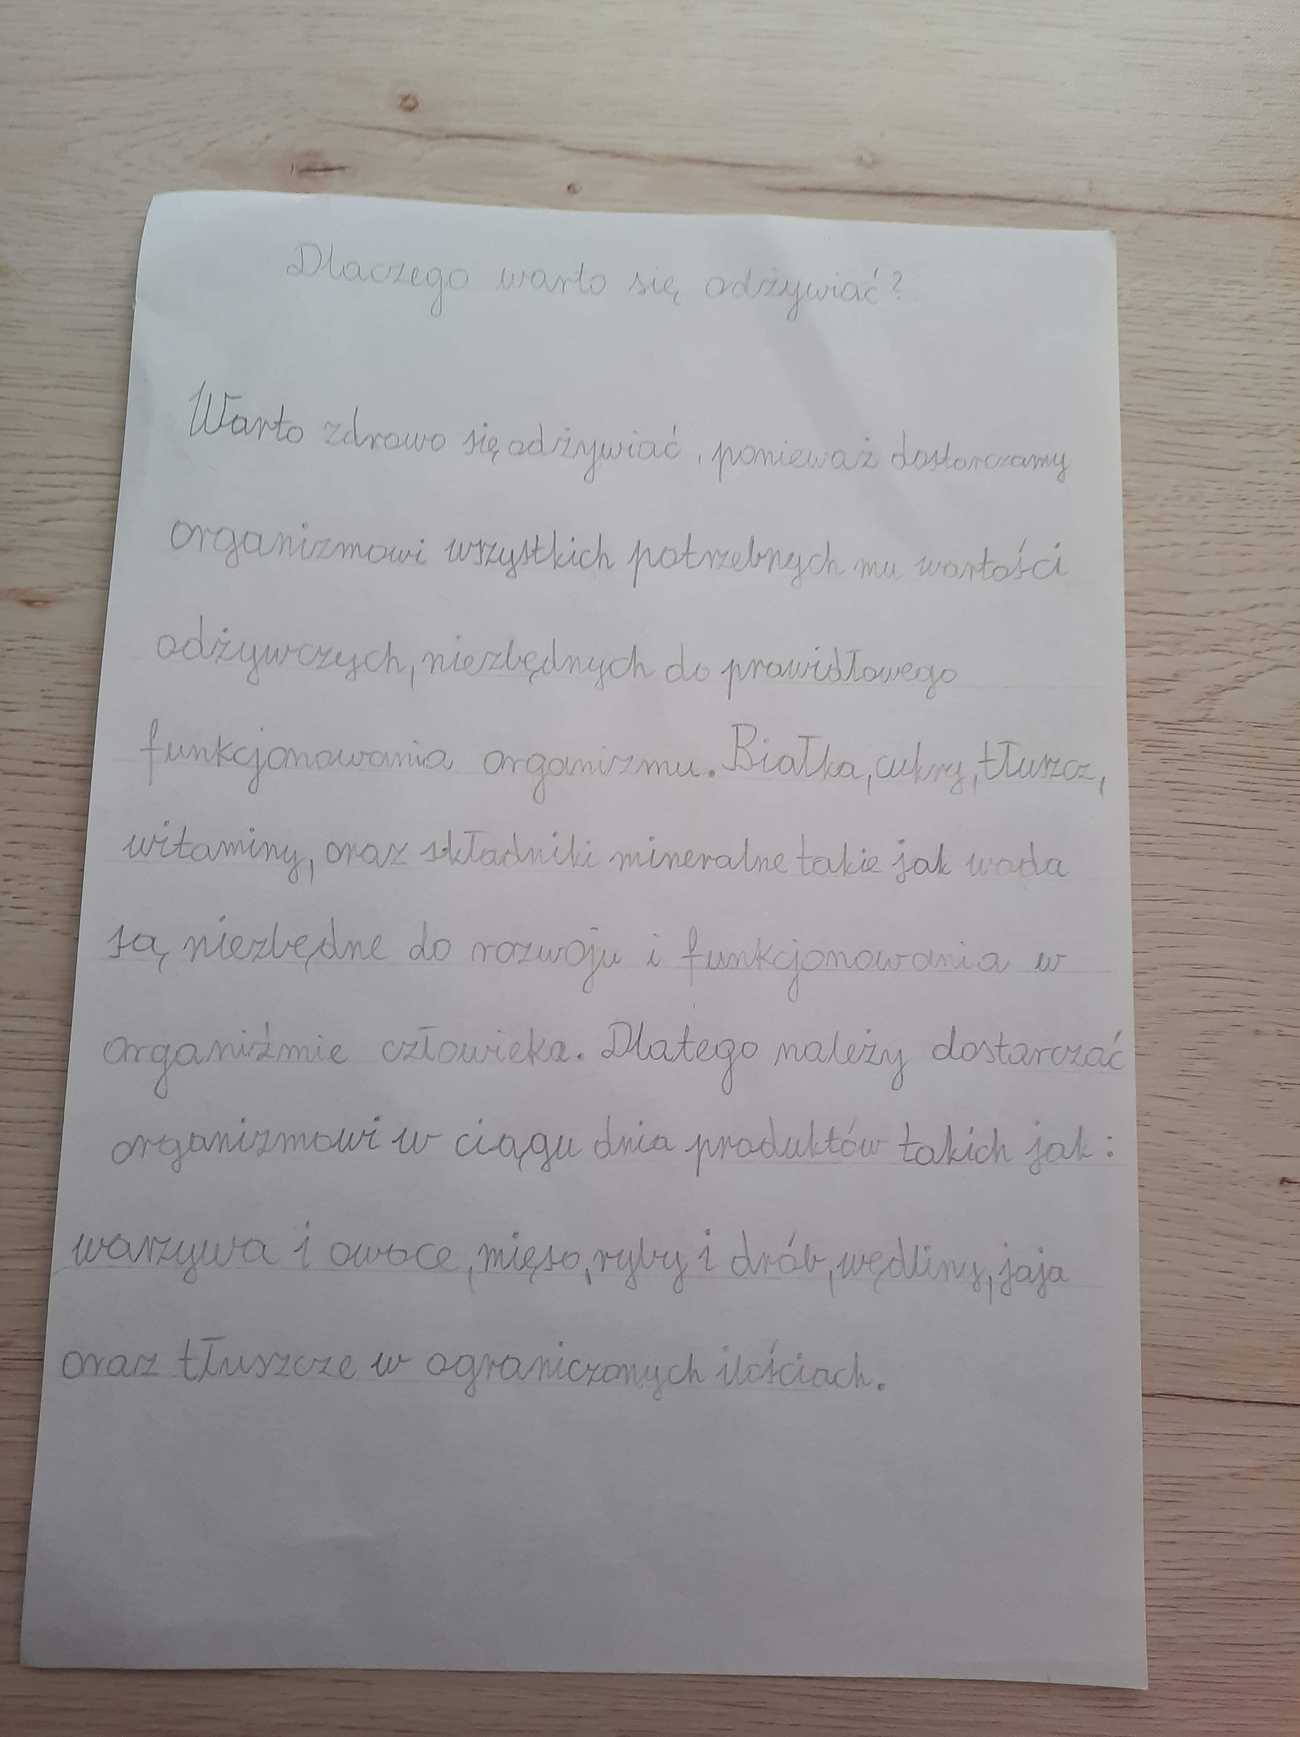 Dlaczego warto się odżywiać?
Warto zdrowo się odżywiać, ponieważ dostarczamy
organizmowi wszystkich potrzebnych mu wartości
odżywczych, niezbędnych do prawidłowego
funkcjonowania organizmu. Białka, cukry, tłuszcz,
witaminy, oraz składniki mineralne takie jak woda
są niezbędne do rozwoju i funkcjonowania w
organiźmie człowieka. Dlatego należy dostarczać
organizmowi w ciągu dnia produktów takich jak:
warzywa i owoce, mięso, ryby i drób, wędliny, jaja
oraz tłuszcze w ograniczonych ilościach.